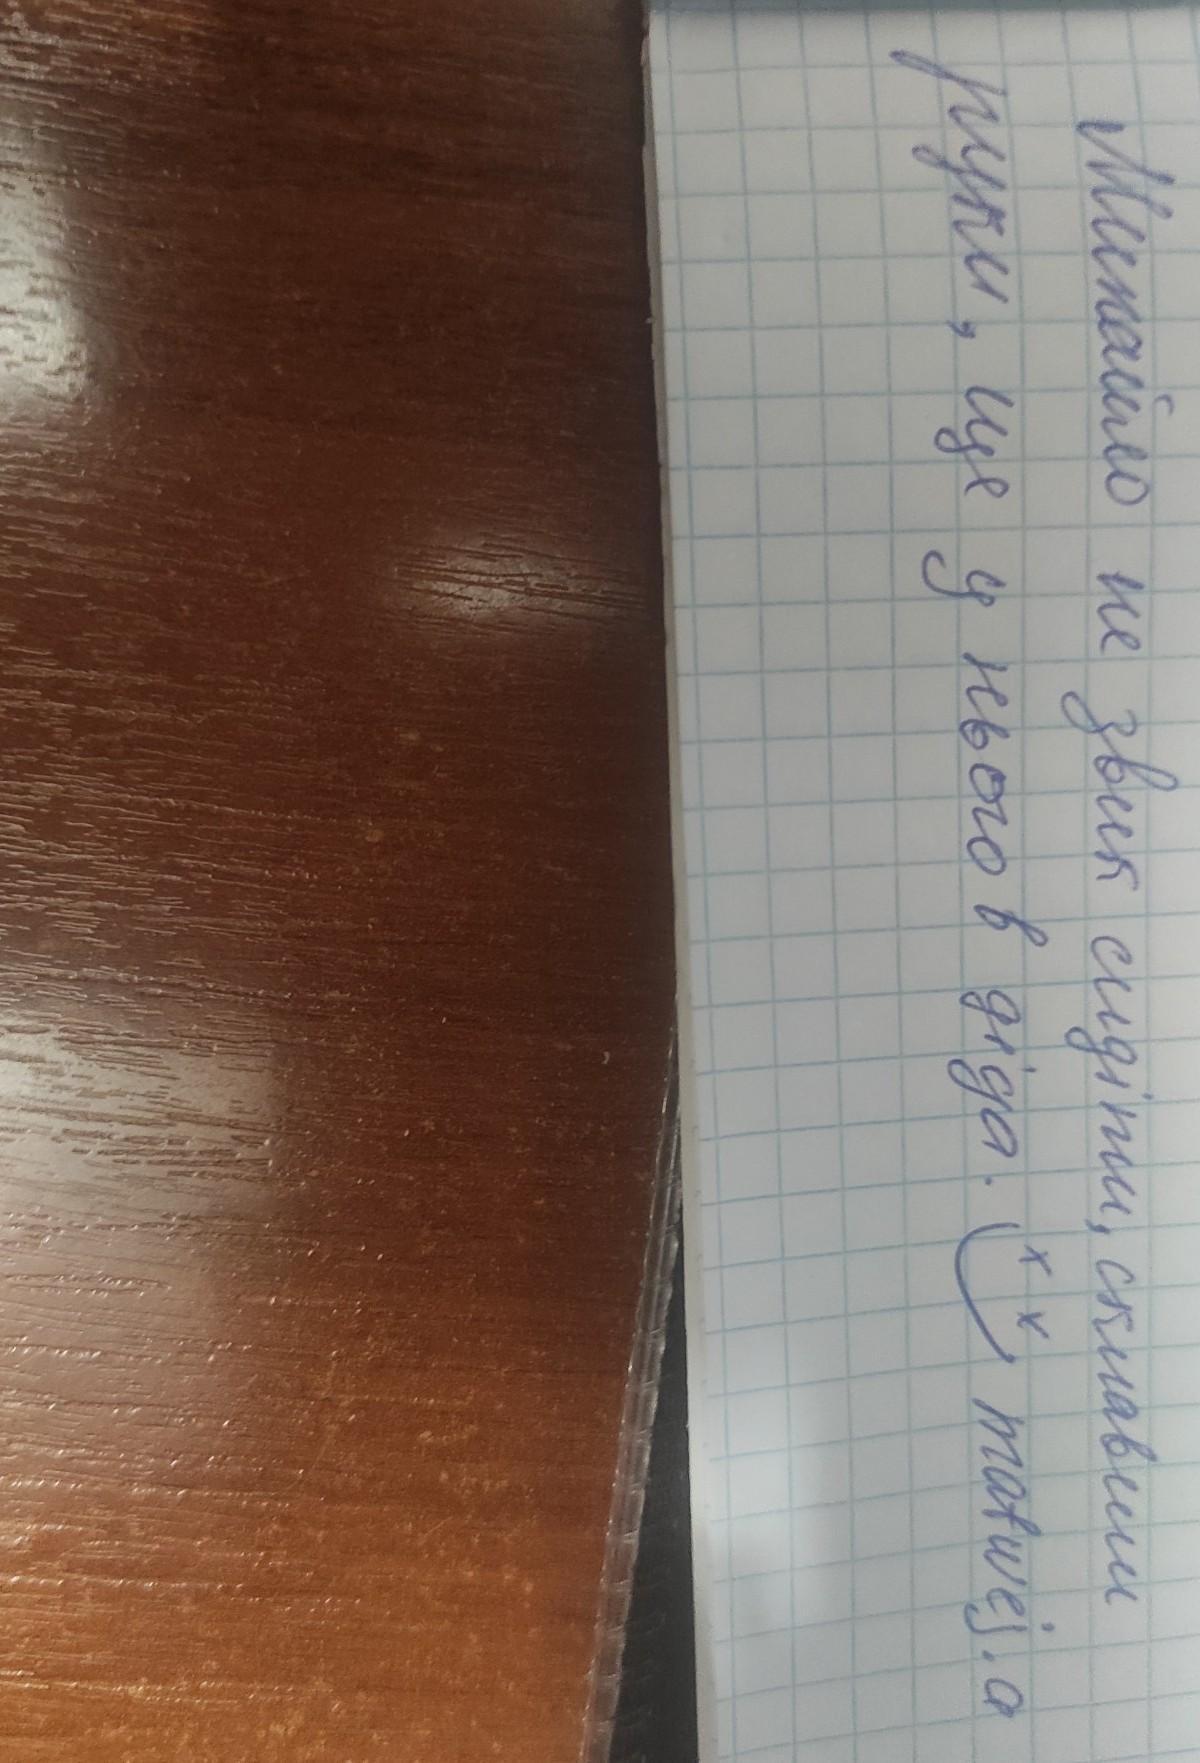 Михайло не звик сидіти, склавши
руки, це у нього в діда. matwej.a